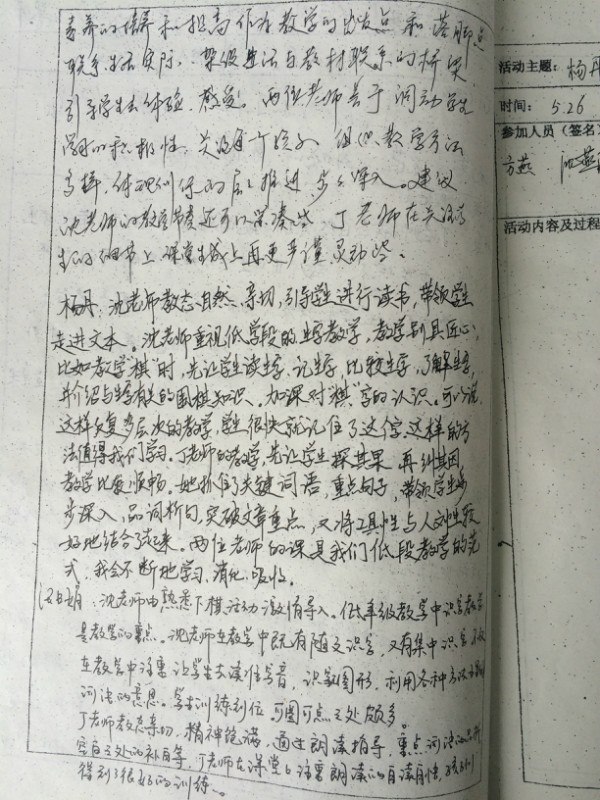 素养的培养和提高作为教学的出发点和落脚点
联系生活实际,架设生活与教材联系的桥梁
引导学生去体验、感受。两位老师善于调动学生
学习的积极性,关注每个孩子,但教学方法
多样,体现训练的层层推进,步步深入。建议
沈老师的教学节奏还可以紧凑些,丁老师在关注学
生的细节上,课堂生成上再更严谨灵动些。
杨丹:沈老师教态自然、亲切,引导学生进行读书,带领学生
走进文本。沈老师重视低学段的生字教学,教学别具匠心,
比如教学“棋”时,先让学生读生字、记生字、比较生字,了解生字,
并介绍与生字有关的围棋知识。加深对“棋”字的认识。可以说
这样反复多层次的教学,学生很快就记住了这个字。这样的方
法值得我们学习。丁老师的教学,先让学生探其果,再纠其因
教学比较顺畅。她抓住了关键词语,重点句子,带领学生步
步深入,品词析句,突破文章重点,又将工具性与人文性较
好地结合了起来。两位老师的课是我们低段教学的范
式,我会不断地学习、消化、吸收。
:沈老师由熟悉下棋活动激情导入。低年级教学中识字教学
是教学的重点。沈老师在教学中既有随文识字,又有集中识字
在教学中注重让学生去读准字音,识记图形,利用各种方法
词语的意思。字本训练到位,可圈可点之处颇多。
丁老师教态亲切,精神饱满,通过朗读指导,重点词语的
空白之处的补白等,丁老师在课堂上注重朗读的
得到了很好的训练。
活动主题:杨丹
时间: 5.26
参加人员(签名)
方燕
活动内容及过程